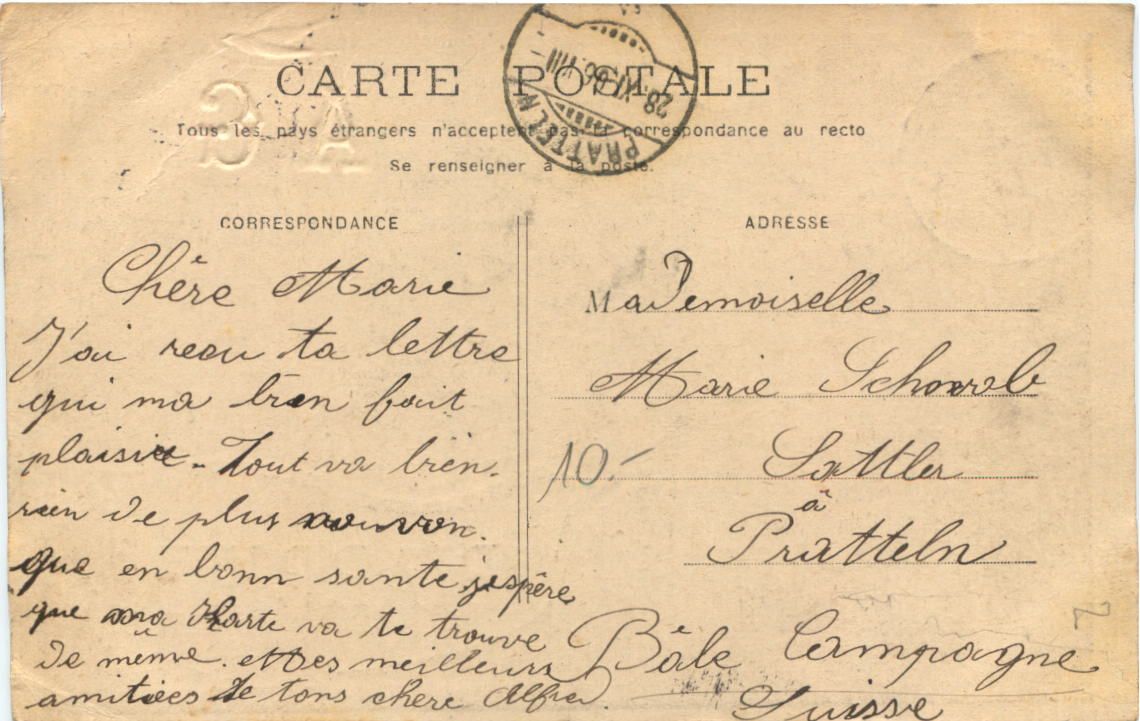 CARTE POSTALE
PRATTELN
28.XI.06.VIII
Tous les pays étrangers n'acceptent pas la correspondance au recto
Se renseigner à la poste.
CORRESPONDANCE
Chère Marie
J'ai reçu ta lettre
qui ma bien fait
plaisir. Tout va bien.
rien de plus nouvon.
que en bonn sante jespère
que ma Karte va te trouve
de même. Mes meilleurs
amitiées de tons chere Alfred.
ADRESSE
MaDemoiselle
Marie Schwab
Sattler
à
Pratteln
Bâle Campagne
Suisse
10.-
2